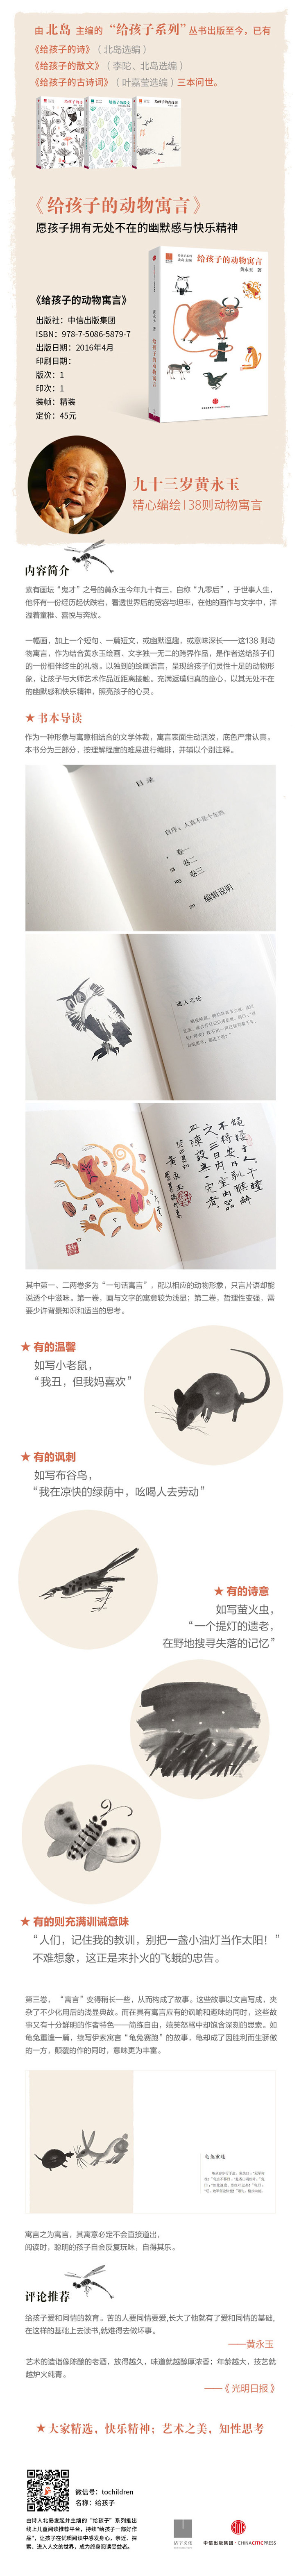 由 北岛 主编的 “给孩子系列” 丛书出版至今，已有
《给孩子的诗》（ 北岛选编 ）
《给孩子的散文》（ 李陀、北岛选编 ）
《给孩子的古诗词》（ 叶嘉莹选编 ）三本问世。
《给孩子的动物寓言》
愿孩子拥有无处不在的幽默感与快乐精神
给孩子的动物寓言
黄永玉 著
《给孩子的动物寓言》
出版社：中信出版集团
ISBN：978-7-5086-5879-7
出版日期：2016年4月
印刷日期：
版次：1
印次：1
装帧：精装
定价：45元
九十三岁黄永玉
精心编绘138则动物寓言
内容简介
素有画坛“鬼才”之号的黄永玉今年九十有三，自称“九零后”，于世事人生，
他怀有一份经历起伏跌宕，看透世界后的宽容与坦率，在他的画作与文字中，洋
溢着童稚、喜悦与奔放。
一幅画，加上一个短句，一篇短文，或幽默逗趣，或意味深长——这138 则动
物寓言，作为结合黄永玉绘画、文字独一无二的跨界作品，是作者送给孩子们
的一份相伴终生的礼物，以独到的绘画语言，呈现给孩子们灵性十足的动物形
象，让孩子与大师艺术作品近距离接触，充满返璞归真的童心，以其无处不在
的幽默感和快乐精神，照亮孩子的心灵。
★ 书本导读
作为一种形象与寓意相结合的文学体裁，寓言表面生动活泼，底色严肃认真。
本书分为三部分，按理解程度的难易进行编排，并辅以个别注释。
目录
自序：人真不是个东西
卷一
卷二
卷三
编辑说明
通人之论
其中第一、二两卷多为“一句话寓言”，配以相应的动物形象，只言片语却能
说透个中滋味。第一卷，画与文字的寓意较为浅显；第二卷，哲理性变强，需
要少许背景知识和适当的思考。
★ 有的温馨
如写小老鼠，
“我丑，但我妈喜欢”
★ 有的讽刺
如写布谷鸟，
“我在凉快的绿荫中，吆喝人去劳动”
★ 有的诗意
如写萤火虫，
“一个提灯的遗老，
在野地搜寻失落的记忆”
★ 有的则充满训诫意味
“人们，记住我的教训，别把一盏小油灯当作太阳！”
不难想象，这正是来扑火的飞蛾的忠告。
第三卷，“寓言”变得稍长一些，从而构成了故事。这些故事以文言写成，夹
杂了不少化用后的浅显典故。而在具有寓言应有的讽喻和趣味的同时，这些故
事又有十分鲜明的作者特色——简练自由，嬉笑怒骂中却饱含深刻的思索。如
龟兔重逢一篇，续写伊索寓言“龟兔赛跑”的故事，龟却成了因胜利而生骄傲
的一方，颠覆的作的同时，意味更为丰富。
龟兔重逢
寓言之为寓言，其寓意必定不会直接道出，
阅读时，聪明的孩子自会反复玩味，自得其乐。
评论推荐
给孩子爱和同情的教育。苦的人要同情要爱,长大了他就有了爱和同情的基础,
在这样的基础上去读书,就难得去做坏事。
——黄永玉
艺术的造诣像陈酿的老酒，放得越久，味道就越醇厚浓香；年龄越大，技艺就
越炉火纯青。
——《 光明日报 》
★ 大家精选，快乐精神；艺术之美，知性思考
微信号：tochildren
名称：给孩子
由诗人北岛发起并主编的“给孩子”系列推出
线上儿童阅读推荐平台，持续“给孩子一部好作
品”，让孩子在优质阅读中感发身心，亲近、探
索、进入人文的世界，成为终身阅读受益者。
活字文化
中信出版集团 · CHINACITICPRESS